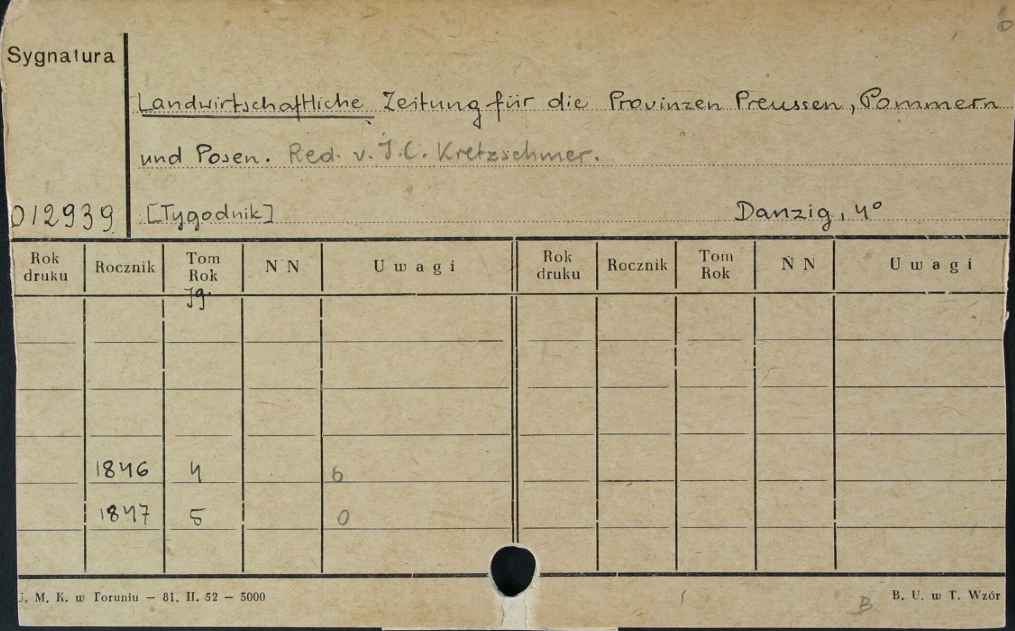 Sygnatura
Landwirtschaftliche Zeitung für die Provinzen Preussen, Pommern
und Posen. Red. v. J.C. Kretzschmer.
012939 [Tygodnik] Danzig, 4°
Rok druku Rocznik Tom Rok N N Uwagi Rok druku Rocznik Tom Rok N N Uwagi
Jg.
1846 4 6
1847 5 0
U. M. K. w Toruniu — 81. II. 52 — 5000 B. U. w T. Wzór
B